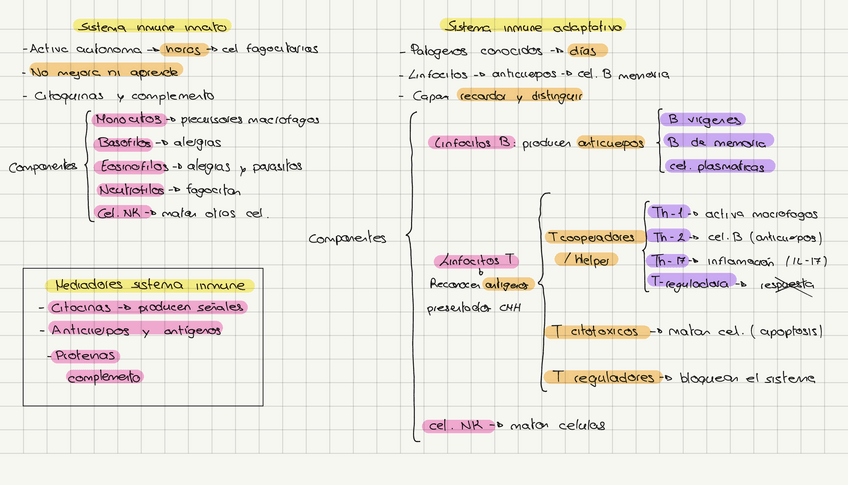 Sistema inmune innato
- Activa autonoma → horas → cel fagocitarias
- No mejora ni aprende
- Citoquinas y complemento
Componentes
Monocitos → precursores macrofagos
Basofilos → alergias
Eosinofilos → alergias y parasitos
Neutrofilos → fagocitan
Cel. NK → matan otras cel.
Mediadores sistema inmune
- Citocinas → producen señales
- Anticuerpos y antígenos
- Proteinas
complemento
Sistema inmune adaptativo
- Patogenos conocidos → días
- Linfocitos → anticuepos → cel. B memoria
- Capan recordar y distinguir
Componentes
Linfocitos B: producen anticuepos
B virgenes
B de memoria
cel. plasmaticas
Linfocitos T
Reconocen antigenos
presentador CMH
T cooperadores
/ Helper
Th-1 → activa macrofagos
Th-2 → cel. B (anticuepos)
Th-17 → inflamación (IL-17)
T-reguladora → respuesta
T citotoxicos → matan cel. (apoptosis)
T reguladores → bloquean el sistema
cel. NK → matan celulas